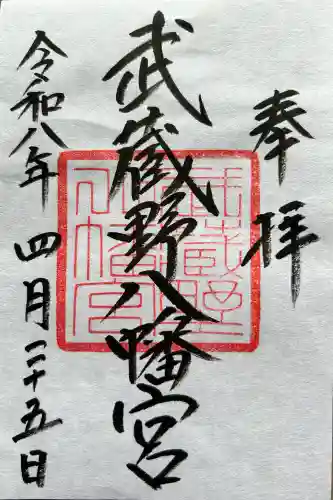 奉拝
武蔵野八幡宮
令和八年四月二十五日
武蔵野八幡宮